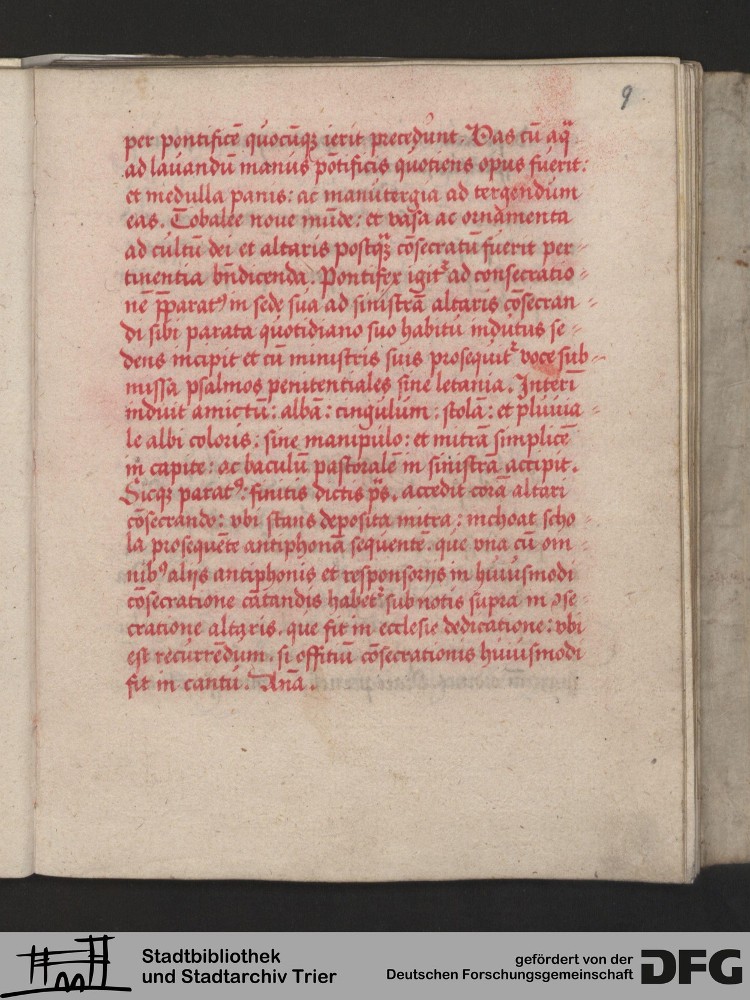 9
per pontificē quocūqꝫ ierit precedunt. Vas cū aq̄
ad lauandū manus pōtificis quotiens opus fuerit:
et medulla panis: ac manutergia ad tergendum
eas. Tobalee noue mūde: et vasa ac ornamenta
ad cultū dei et altaris postqꝫ cōsecratū fuerit per-
tinentia bn̄dicenda. Pontifex igit᷑ ad consecratio-
nē p̄parat⁹ in sede sua ad sinistrā altaris cōsecran-
di sibi parata quotidiano suo habitu indutus se-
dens incipit et cū ministris suis prosequit᷑ voce sub-
missa psalmos penitentiales sine letania. Interī
induit amictū: albā: cingulum: stolā: et pluuia-
le albi coloris: sine manipulo: et mitrā simplicē
in capite: ac baculū pastoralē in sinistra accipit.
Sicqꝫ parat⁹: finitis dictis ps̄. accedit corā altari
cōsecrando: vbi stans deposita mitra: inchoat scho-
la prosequēte antiphonā sequentē. que vna cū om-
nib⁹ alijs antiphonis et responsorijs in huiusmodi
cōsecratione cātandis habet᷑ sub notis supra in ↄse-
cratione altaris. que fit in ecclesie dedicatione: vbi
est recurrēdum. si offitiū cōsecrationis huiusmodi
fit in cantu. Anā.
Stadtbibliothek
und Stadtarchiv Trier
gefördert von der
Deutschen Forschungsgemeinschaft
DFG